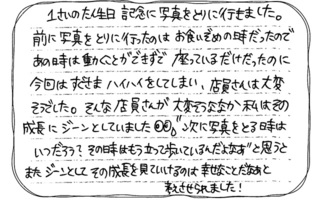 1さいのたん生日記念に写真をとりに行きました。
前に写真をとりに行ったのはお食いぞめの時だったので
あの時は動くことができずで座っているだけだったのに
今回はすぐさまハイハイをしてしまい、店員さんは大変
そうでした。そんな店員さんが大変そうななか私はその
成長にジーンとしていました。"次に写真をとる時は
いつだろう?その時はもう立って歩いているんだよなぁ"と思うと
またジーンとして その成長を見ていけるのは幸せなことだなぁと
考えさせられました!